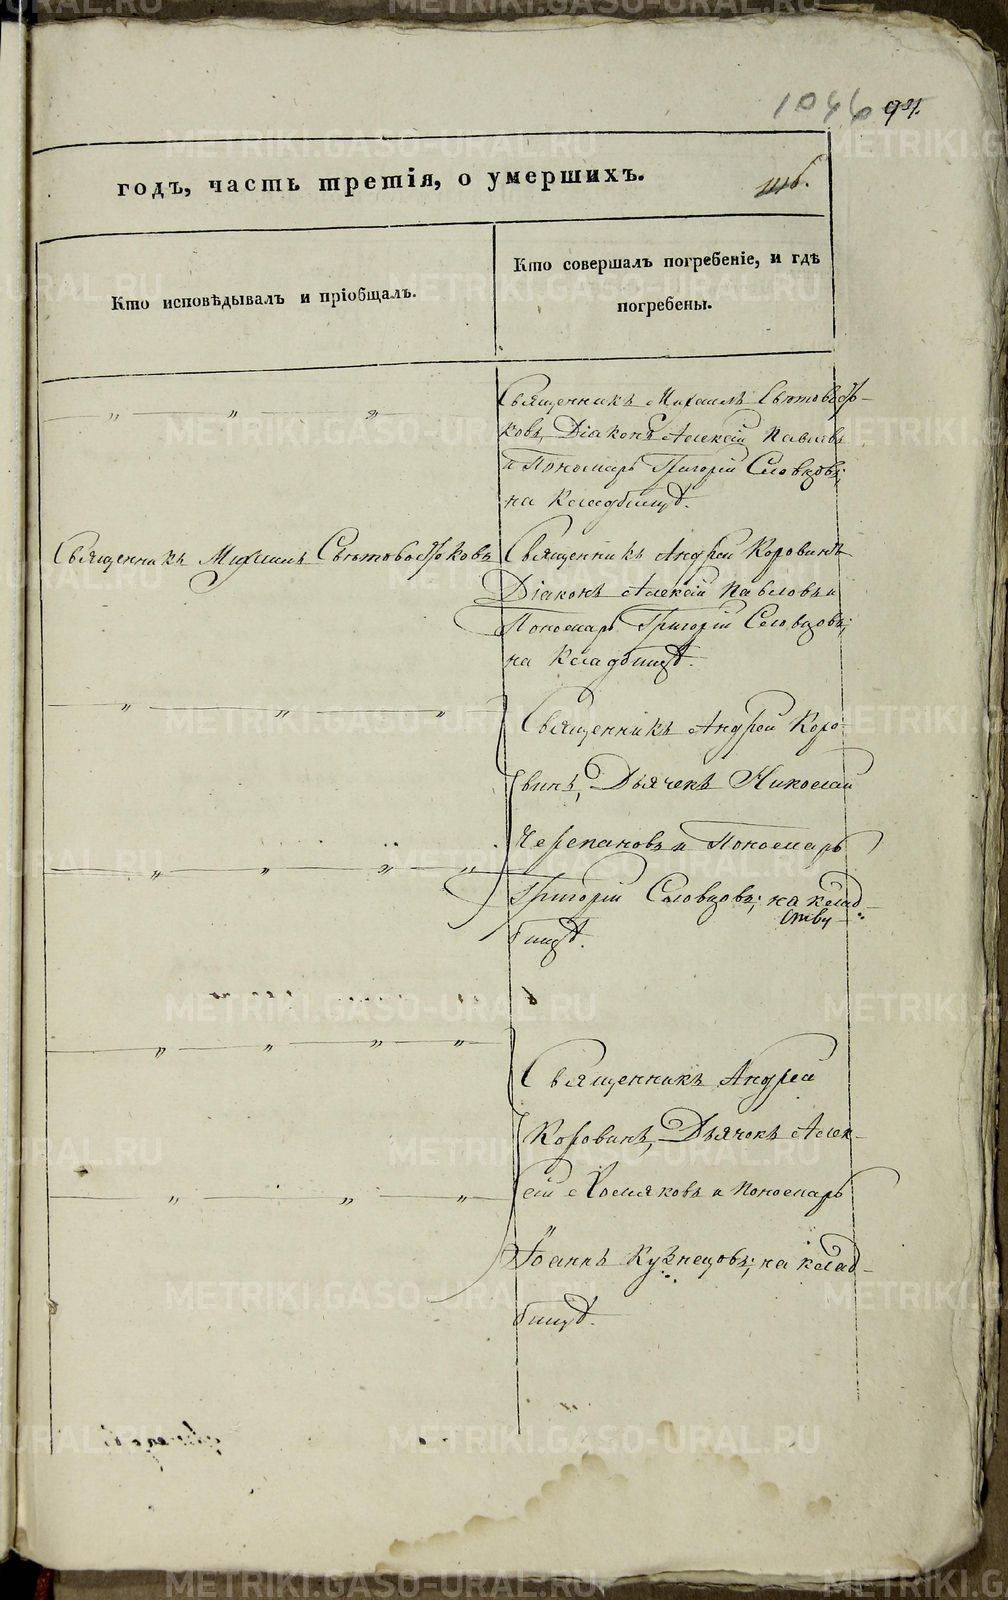 1046
годъ, часть третія, о умершихъ.
Кто исповѣдывалъ и пріобщалъ.
Кто совершалъ погребеніе, и гдѣ
погребены.
Священникъ Михаилъ
ковъ, Діаконъ Алексій Павловъ
и Пономарь Григорій Словцовъ;
на Кладбищѣ.
Священникъ Михаилъ
Священникъ Андрей Коровинъ
Діаконъ Алексій Павловъ и
Пономарь Григорій Словцовъ;
на Кладбищѣ.
Священникъ Андрей Коро-
винъ, Дьячекъ Николай
Черепановъ и Пономарь
Григорій Словцовъ; на клад-
бищѣ.
Священникъ Андрей
Коровинъ, Дьячокъ Алек-
сій Хомяковъ и Пономарь
Іоаннъ Кузнецовъ; на клад-
бищѣ.
METRIKI.GASO-URAL.RU